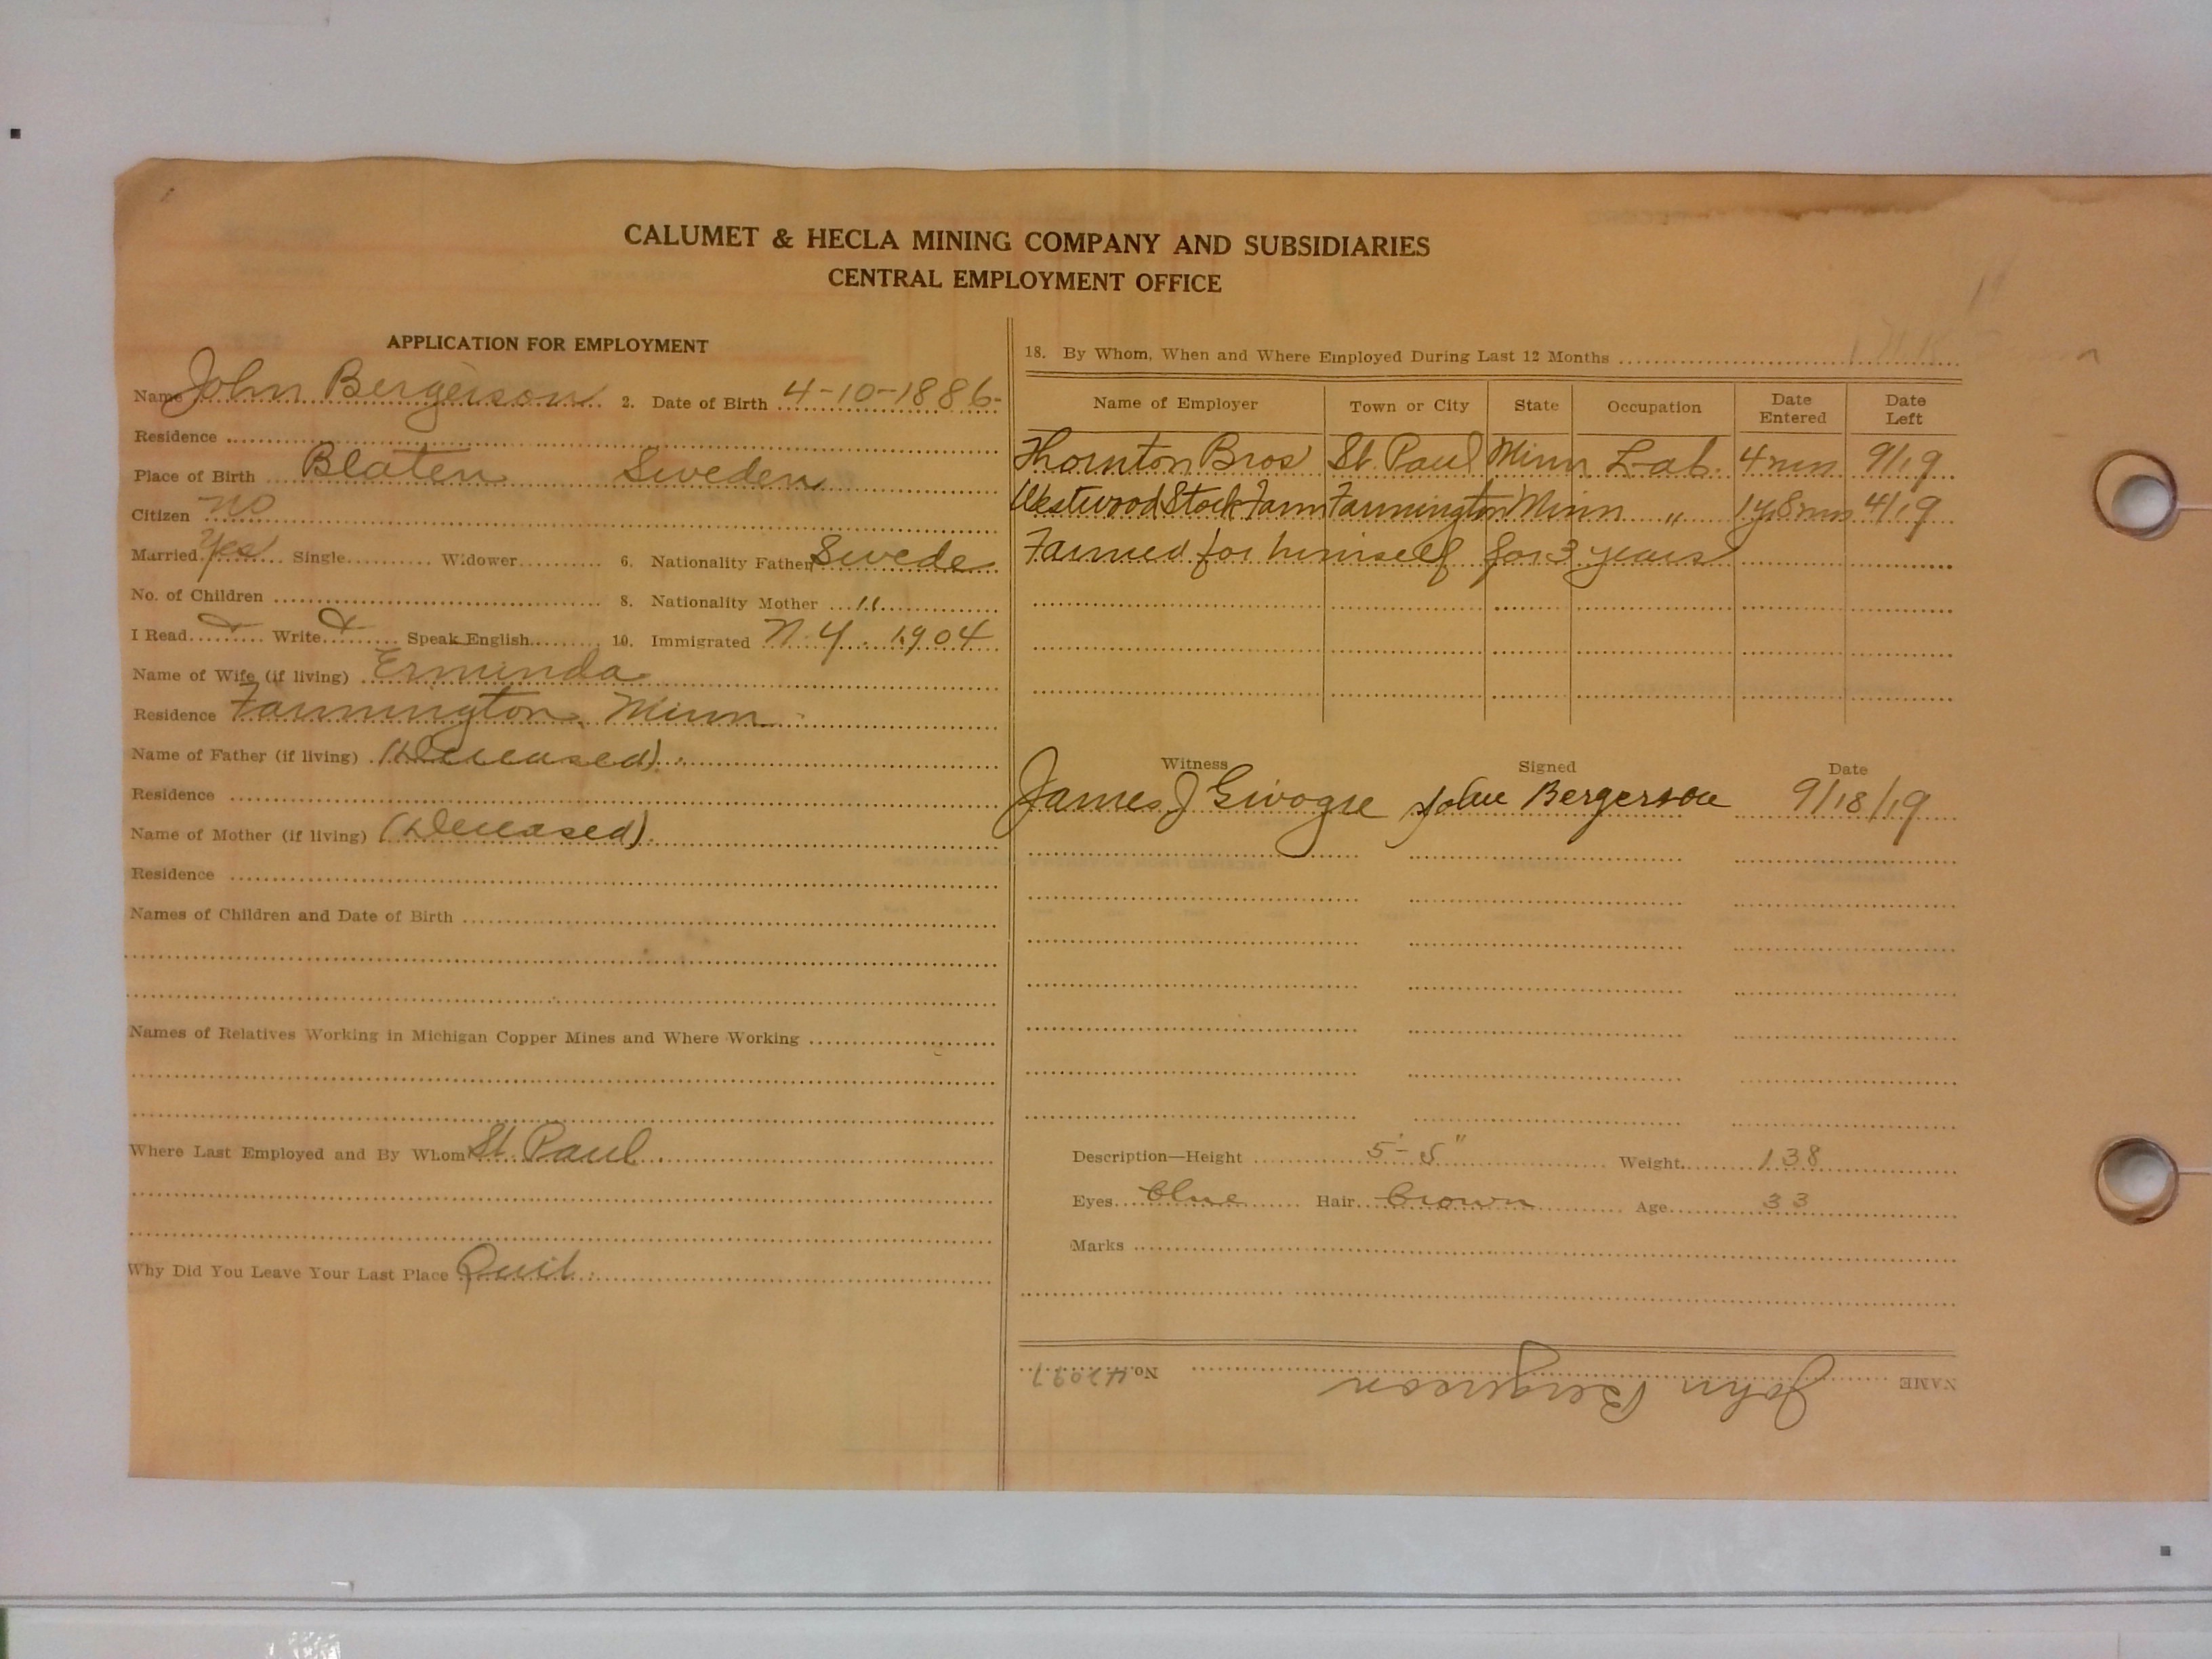 CALUMET & HECLA MINING COMPANY AND SUBSIDIARIES
CENTRAL EMPLOYMENT OFFICE
APPLICATION FOR EMPLOYMENT
Name John Bergerson 2. Date of Birth 4-10-1886-
Residence
Place of Birth Blaten Sweden
Citizen no
Married Yes Single Widower 6. Nationality Father Swede
No. of Children 8. Nationality Mother "
I Read Write Speak English 10. Immigrated N.Y. 1904
Name of Wife (if living) Erminda
Residence Farmington, Minn
Name of Father (if living) (Deceased).
Residence
Name of Mother (if living) (Deceased).
Residence
Names of Children and Date of Birth
Names of Relatives Working in Michigan Copper Mines and Where Working
Where Last Employed and By Whom St. Paul
Why Did You Leave Your Last Place Quit.
18. By Whom, When and Where Employed During Last 12 Months
Name of Employer Town or City State Occupation Date Entered Date Left
Thornton Bros St. Paul Minn Lab. 4 mn 9/19
Westwood Stock Farm Farmington Minn " 1 yr 8 mn 4/19
Farmed for himself for 3 years
Witness Signed Date
James J John Bergerson 9/18/19
Description—Height 5'-5" Weight 138
Eyes blue Hair brown Age 33
Marks
NAME John Bergerson No.